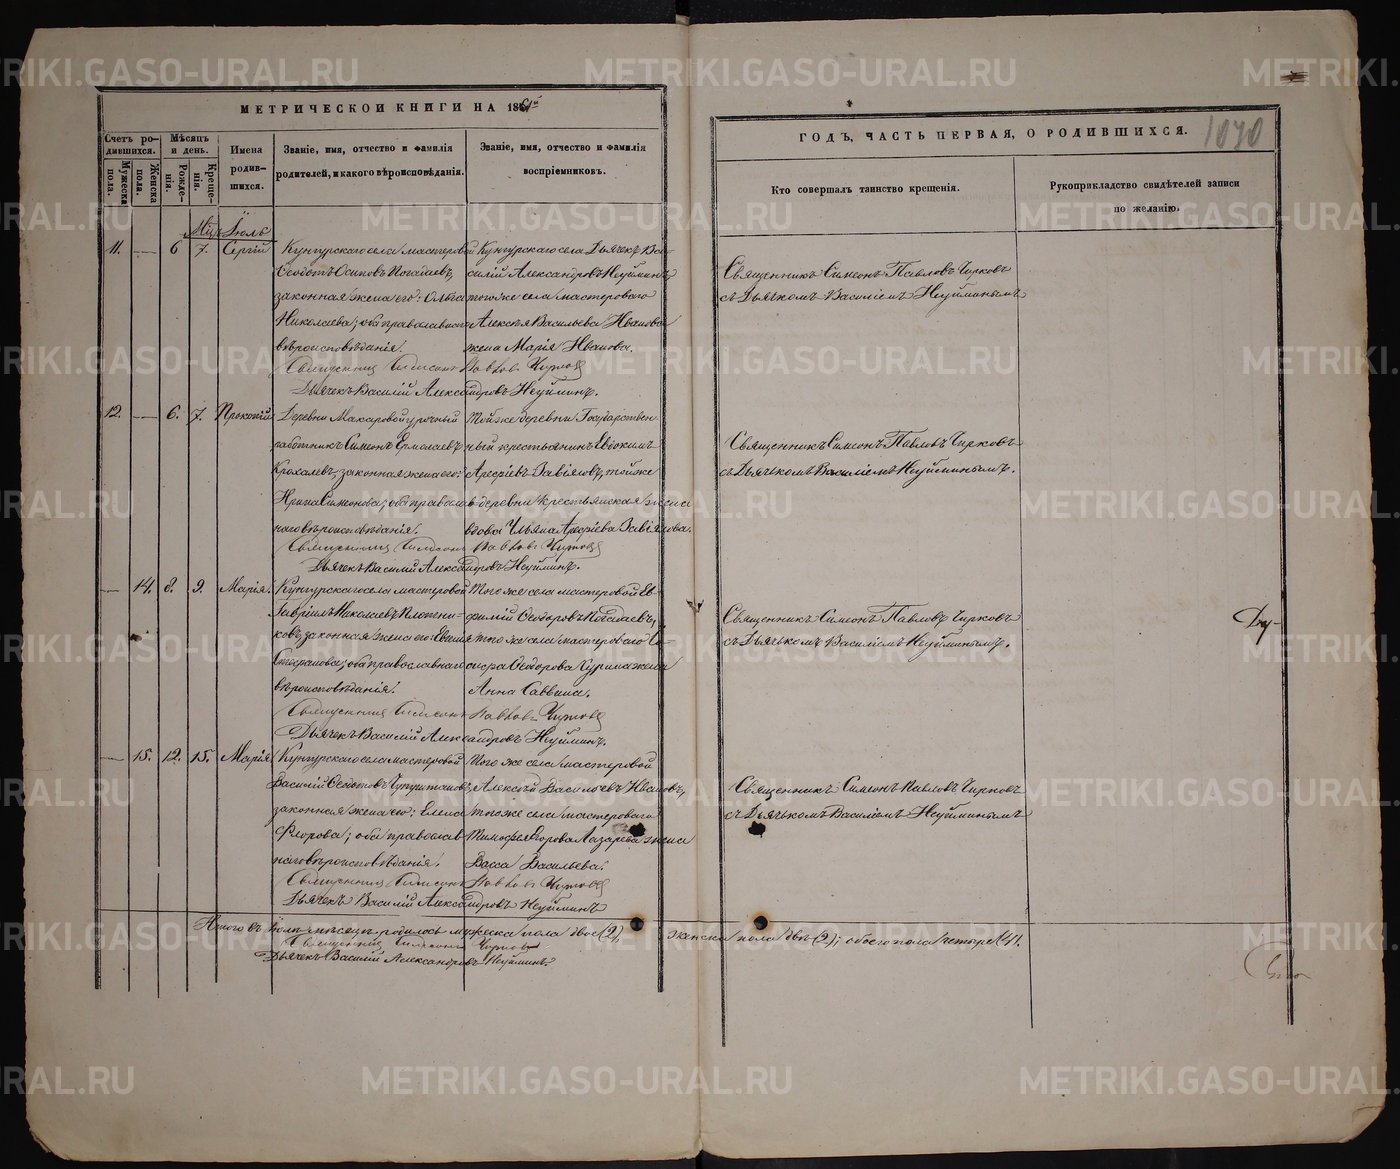 МЕТРИЧЕСКОЙ КНИГИ НА 1861й
ГОДЪ, ЧАСТЬ ПЕРВАЯ, О РОДИВШИХСЯ.
1040
Счетъ родившихся.
Мужеска пола.
Женска пола.
Мѣсяцъ и день.
Рожденія.
Крещенія.
Имена родившихся.
Званіе, имя, отчество и фамилія родителей, и какого вѣроисповѣданія.
Званіе, имя, отчество и фамилія воспріемниковъ.
Кто совершалъ таинство крещенія.
Рукоприкладство свидѣтелей записи по желанію.
Мцъ Іюль
11. — 6 7. Сергій
Кунгурскаго села мастеровой
Ѳедотъ Осиповъ Погадаевъ,
законная жена его: Ольга
Николаева; оба православнаго
вѣроисповѣданія.
Кунгурскаго села Дьячекъ Василій Александровъ Неуйминъ
тогоже села мастероваго
Алексѣя Васильева Иванова
жена Марія Иванова.
Священникъ Симеонъ Павловъ Чирковъ
Дьячекъ Василій Александровъ Неуйминъ.
Священникъ Симеонъ Павловъ Чирковъ
съ Дьячкомъ Василіемъ Неуйминымъ
12. — 6. 7. Прокопій
Деревни Макаровой урочный
работникъ Симеонъ Ермолаевъ
Крохалевъ, законная жена его:
Симонова; оба православнаго вѣроисповѣданія.
Тойже деревни Государственный крестьянинъ Евдокимъ
Арефіевъ Завіяловъ, тойже
деревни крестьянская
вдова Ульяна Арефіева Завіялова.
Священникъ Симеонъ Павловъ Чирковъ
Дьячекъ Василій Александровъ Неуйминъ.
Священникъ Симеонъ Павловъ Чирковъ
съ Дьячкомъ Василіемъ Неуйминымъ.
— 14. 8. 9. Марія.
Кунгурскаго села мастеровой
Гавріилъ Николаевъ Плотниковъ, законная жена его:
Стефанова; оба православнаго
вѣроисповѣданія.
Того же села мастеровой
Ѳеодоровъ Погадаевъ,
тогоже села мастероваго
Ѳедорова Чурина жена
Анна Саввина.
Священникъ Симеонъ Павловъ Чирковъ
Дьячекъ Василій Александровъ Неуйминъ.
Священникъ Симеонъ Павловъ Чирковъ
съ Дьячькомъ Василіемъ Неуйминымъ.
— 15. 12. 15. Марія
Кунгурскаго села мастеровой
Василій Ѳедотовъ
законная жена его: Елена
Флорова; оба православнаго вѣроисповѣданія.
Того же села мастеровой
Алексѣй Васильевъ Ивановъ,
тогоже села мастероваго
Тимофея Егорова Лазарева жена
Васса Васильева.
Священникъ Симеонъ Павловъ Чирковъ
Дьячекъ Василій Александровъ Неуйминъ
Священникъ Симеонъ Павловъ Чирковъ
съ Дьячькомъ Василіемъ Неуйминымъ
Итого въ Іюлѣ мѣсяцѣ родилось мужеска пола двое (2), женска пола двѣ (2); обоего пола четыре (4).
Священникъ Симеонъ Чирковъ
Дьячекъ Василій Александровъ Неуйминъ.
METRIKI.GASO-URAL.RU